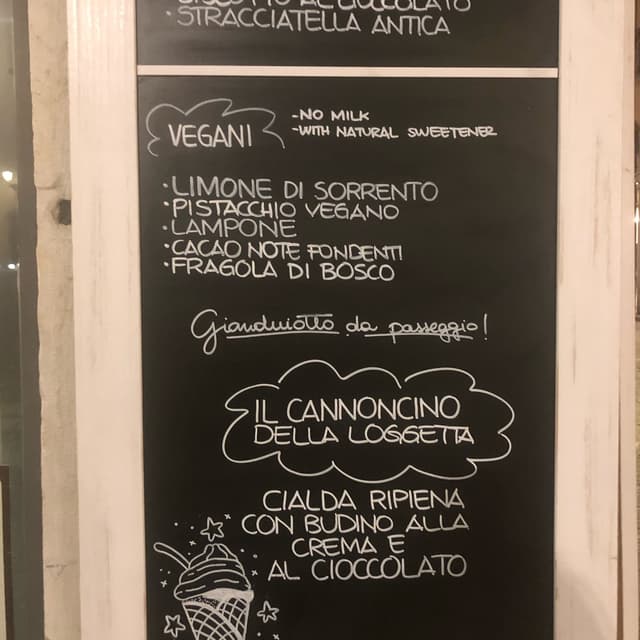 BISCOTTO AL CIOCCOLATO
• STRACCIATELLA ANTICA
VEGANI
-NO MILK
-WITH NATURAL SWEETENER
• LIMONE DI SORRENTO
• PISTACCHIO VEGANO
• LAMPONE
• CACAO NOTE FONDENTI
• FRAGOLA DI BOSCO
Gianduiotto da passeggio!
IL CANNONCINO
DELLA LOGGETTA
CIALDA RIPIENA
CON BUDINO ALLA
CREMA E
AL CIOCCOLATO